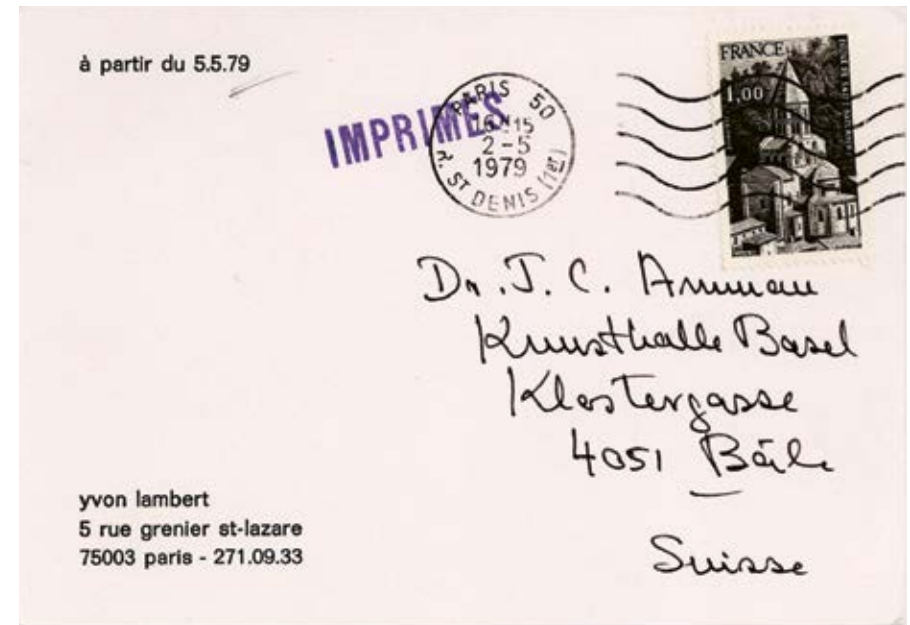 à partir du 5.5.79
IMPRIMES
PARIS 50
16H15
2-5
1979
R. ST DENIS (1er)
FRANCE
1,00
Dr. J. C. Amman
Kunsthalle Basel
Klostergasse
4051 Bâle
Suisse
yvon lambert
5 rue grenier st-lazare
75003 paris - 271.09.33